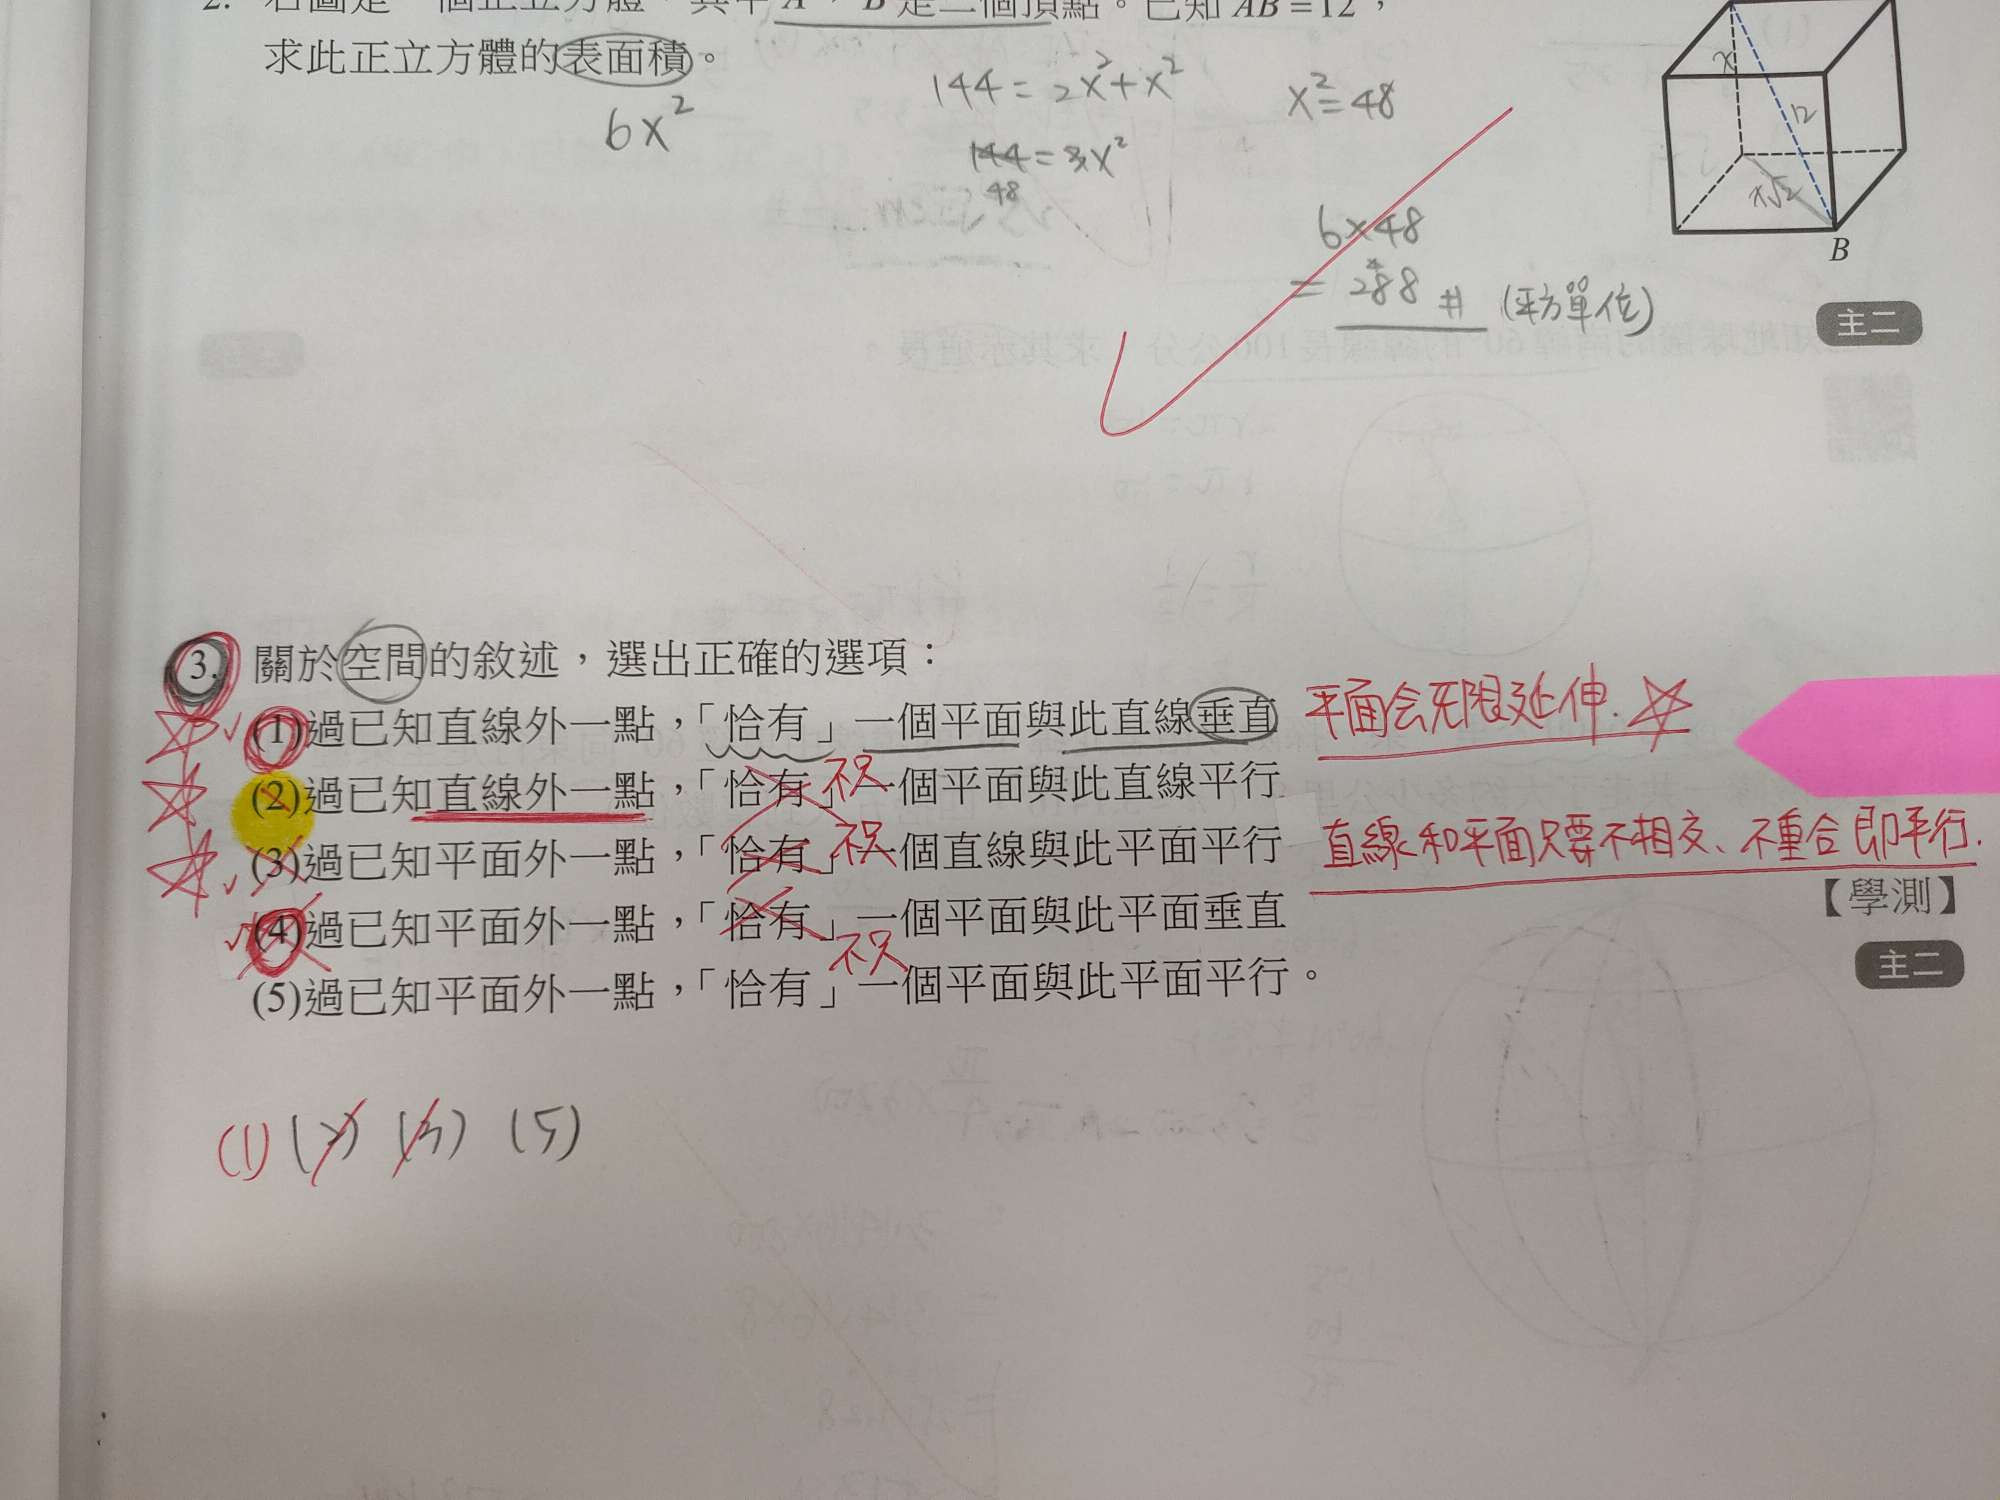 2. 右圖是一個正立方體，其中 A、B 是二個頂點。已知 AB=12，
求此正立方體的表面積。
6x²
144=2x²+x²
144=3x²
48
x²=48
6×48
=288 # (平方單位)
x
12
x√2
B
主二
3. 關於空間的敘述，選出正確的選項：
(1)過已知直線外一點，「恰有」一個平面與此直線垂直 平面会无限延伸.
(2)過已知直線外一點，「恰有」一個平面與此直線平行
不只
(3)過已知平面外一點，「恰有」一個直線與此平面平行 直線和平面只要不相交、不重合即平行.
不只
【學測】
(4)過已知平面外一點，「恰有」一個平面與此平面垂直
不只
主二
(5)過已知平面外一點，「恰有」一個平面與此平面平行。
(1) (2) (3) (5)